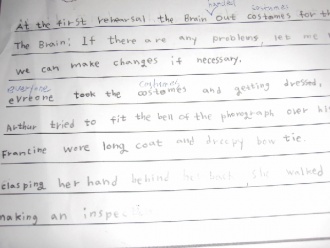 handed costumes
At the first rehearsal the Brain Out costomes for th
The Brain: If there are any problems, let me
we can make changes if necessary.
costumes
evreione took the costomes and getting dressed,
Arthur tried to fit the bell of the phonograph over hi
Francine wore long coat and droopy bow tie.
clasping her hand behind her back, she walked
making an inspection